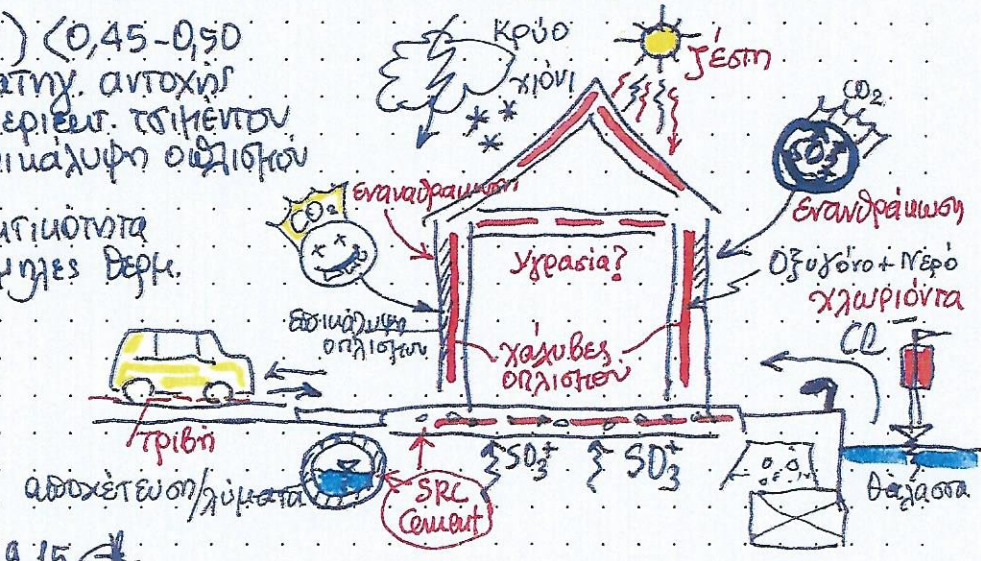 ) <0,45-0,50
ατηγ. αντοχής
εριεκτ. τσιμέντου
ικάλυψη οπλισμού
κτικότητα
μηλες θερμ.
Κρύο
χιόνι
ζέστη
CO₂
CO₂
ενανθράκωση
ενανθράκωση
Υγρασία?
Οξυγόνο + Νερό
χλωριόντα
Cl⁻
επικάλυψη
οπλισμού
χάλυβες
οπλισμού
τριβή
SO₃⁺
SO₃⁺
αποχέτευση/λύματα
SRC
Cement
θάλασσα